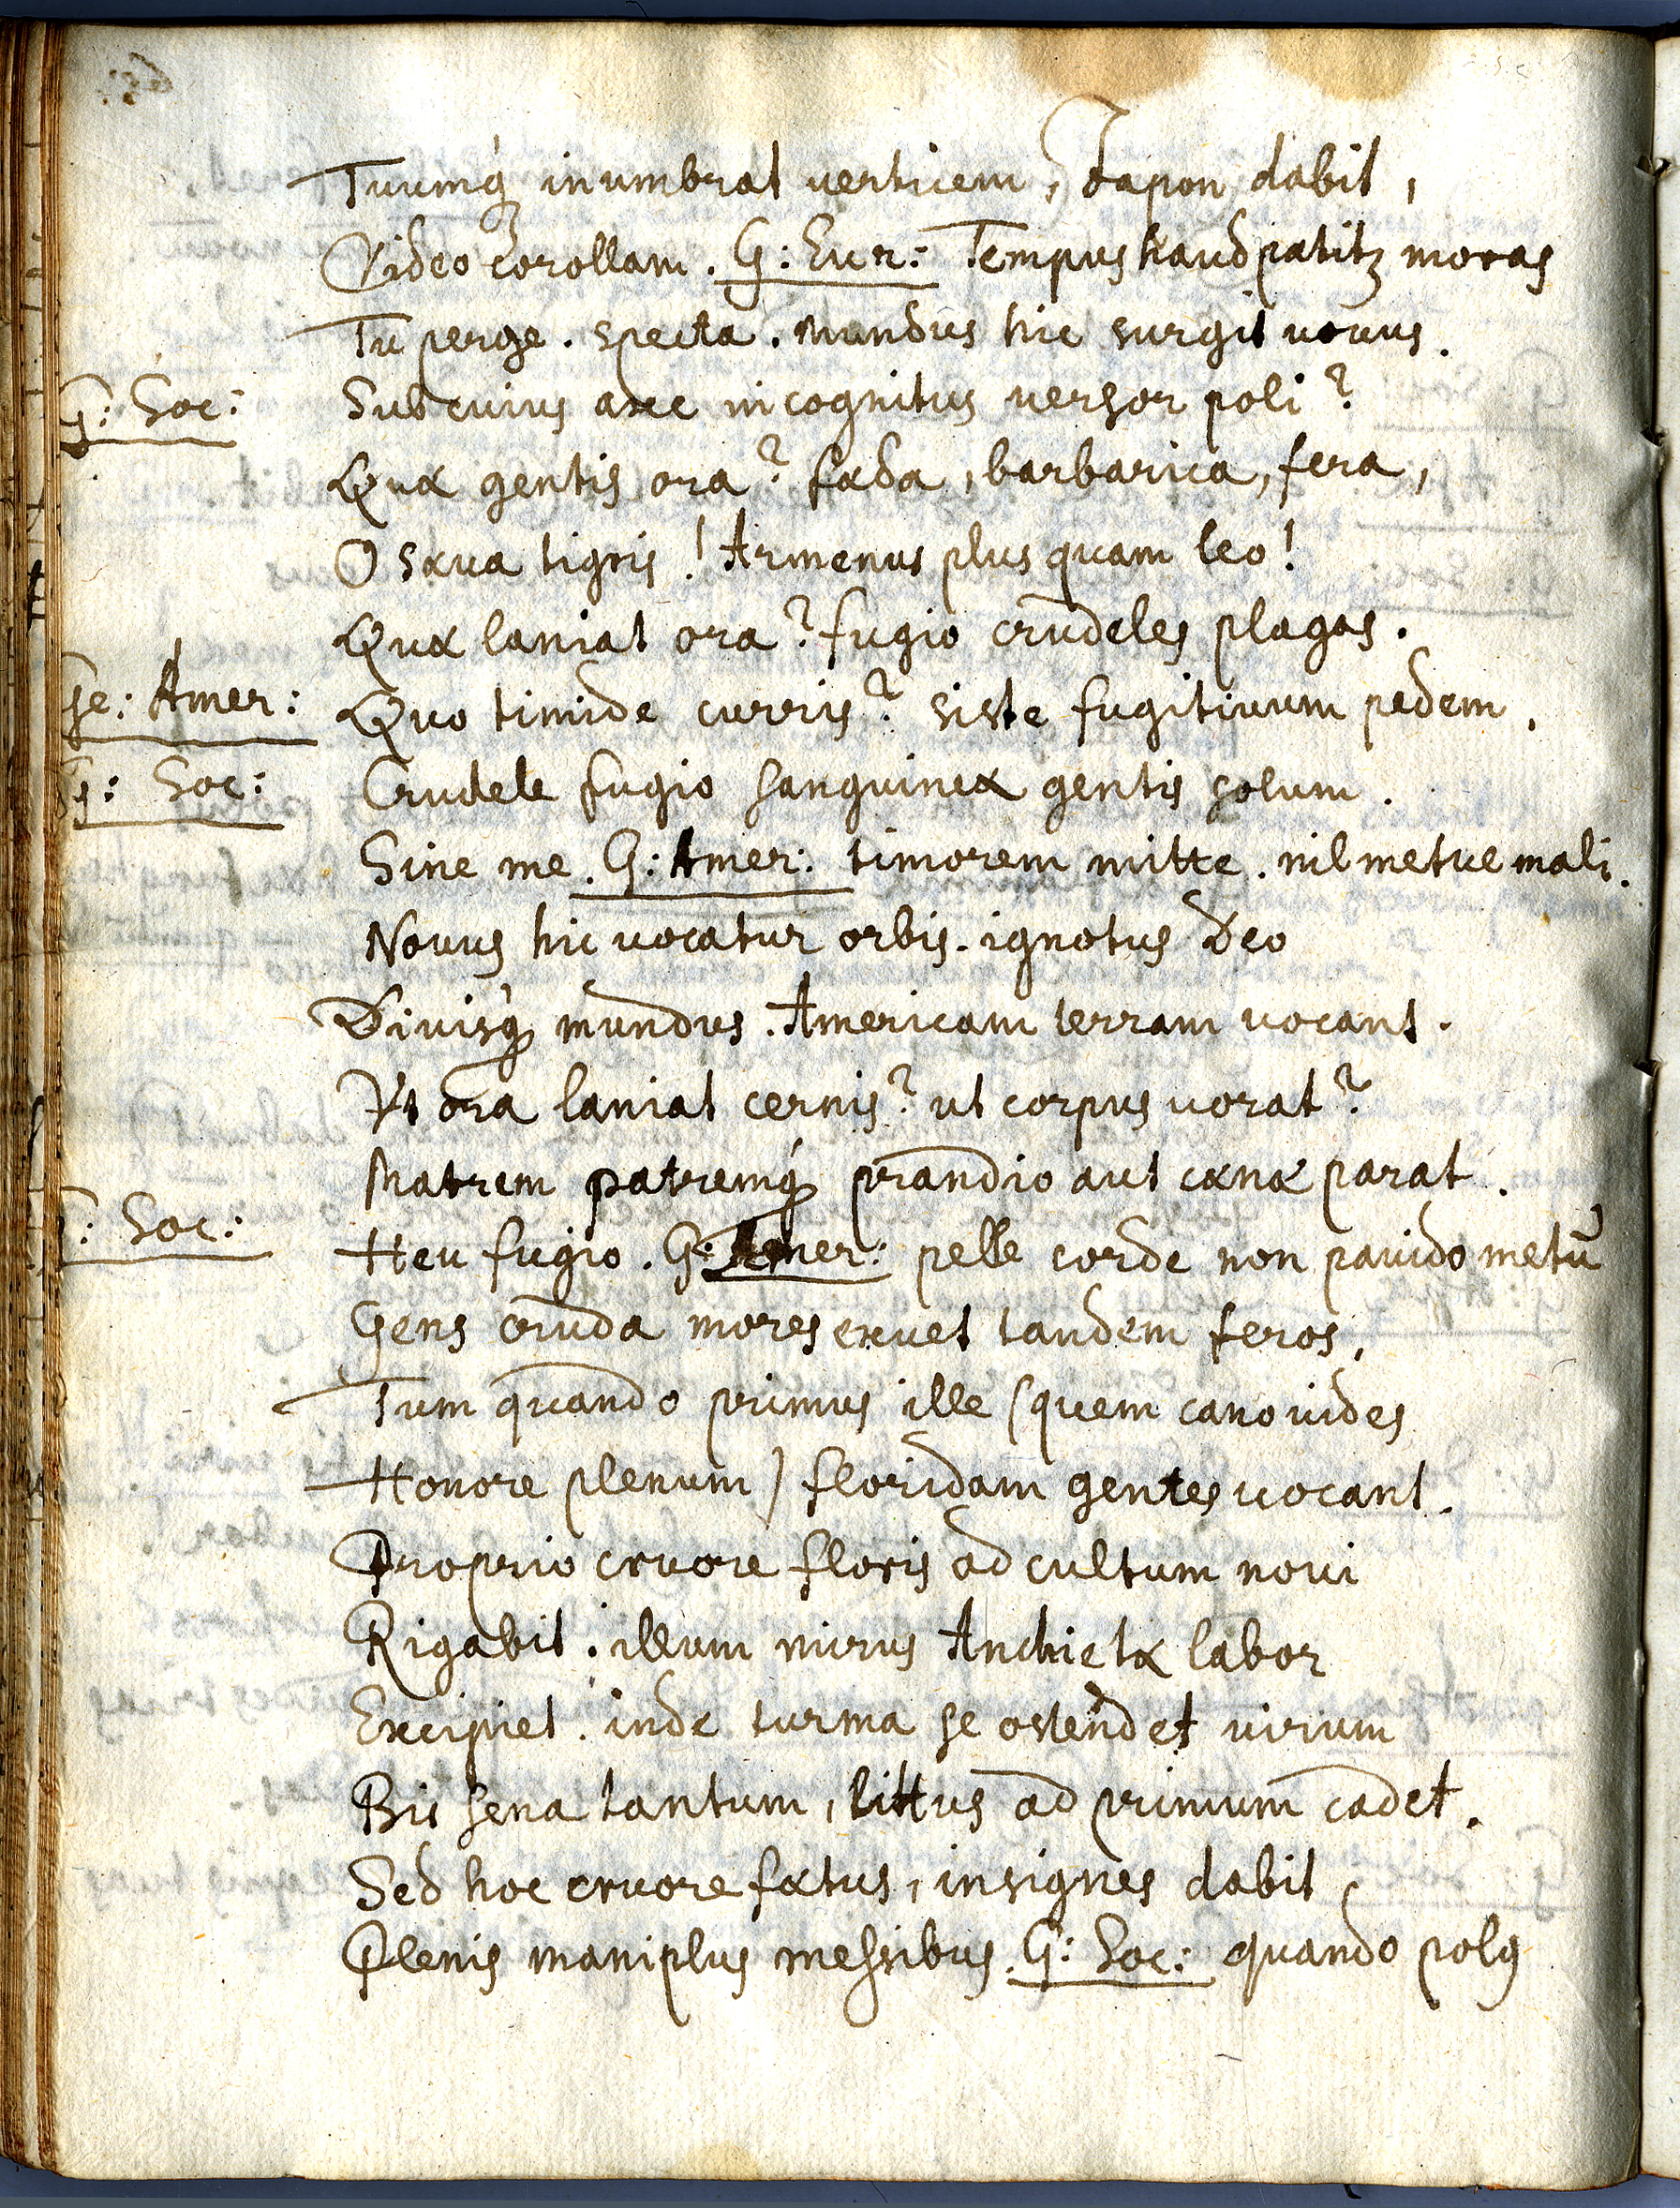 Tuumq́ inumbrat uerticem, Japon dabit,
Video corollam. G: Eur: Tempus haud patitꝫ moras
Tu perge. specta. Mundus hic surgit nouus.
G: Soc: Sub cuius axe incognitus uersor poli?
Quæ gentis ora? fæda, barbarica, fera,
O sæua tigris! Armenus plus quam leo!
Quæ laniat ora? fugio crudeles plagas.
Ge: Amer: Quo timide curris? siste fugitiuum pedem.
G: Soc: Crudele fugio sanguineæ gentis solum.
Sine me. G: Amer: timorem mitte. nil metue mali.
Nouus hic uocatur orbis. ignotus Deo
Diuisq́ mundus. Americam terram uocant.
Vt ora laniat cernis? ut corpus uorat?
Matrem patremq́ prandio aut cænæ parat.
G: Soc: Heu fugio. G: Amer: pelle corde non pauido metū
Gens cruda mores exuet tandem feros,
Tum quando primus ille (quem cano uides
Honore plenum) floridam gentes uocant.
Proprio cruore floris ad cultum noui
Rigabit. illum mirus Anchietæ labor
Excipiet. inde turma se ostendet uirum
Bis sena tantum, littus ad primum cadet.
Sed hoc cruore fætus, insignes dabit
Plenis maniplus messibus. G: Soc: quando polꝯ